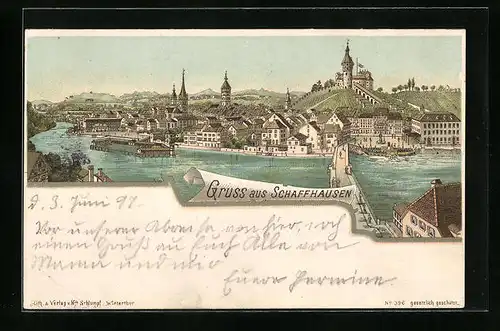 GRUSS AUS SCHAFFHAUSEN
d. 3. Juni 98.
Vor unserer Abreise von hier, noch
einen Gruß an Euch Alle von
Mama und mir
Euere Hermine.
Lith. & Verlag v. Schlumpf, Winterthur
No. 396 gesetzlich geschützt.